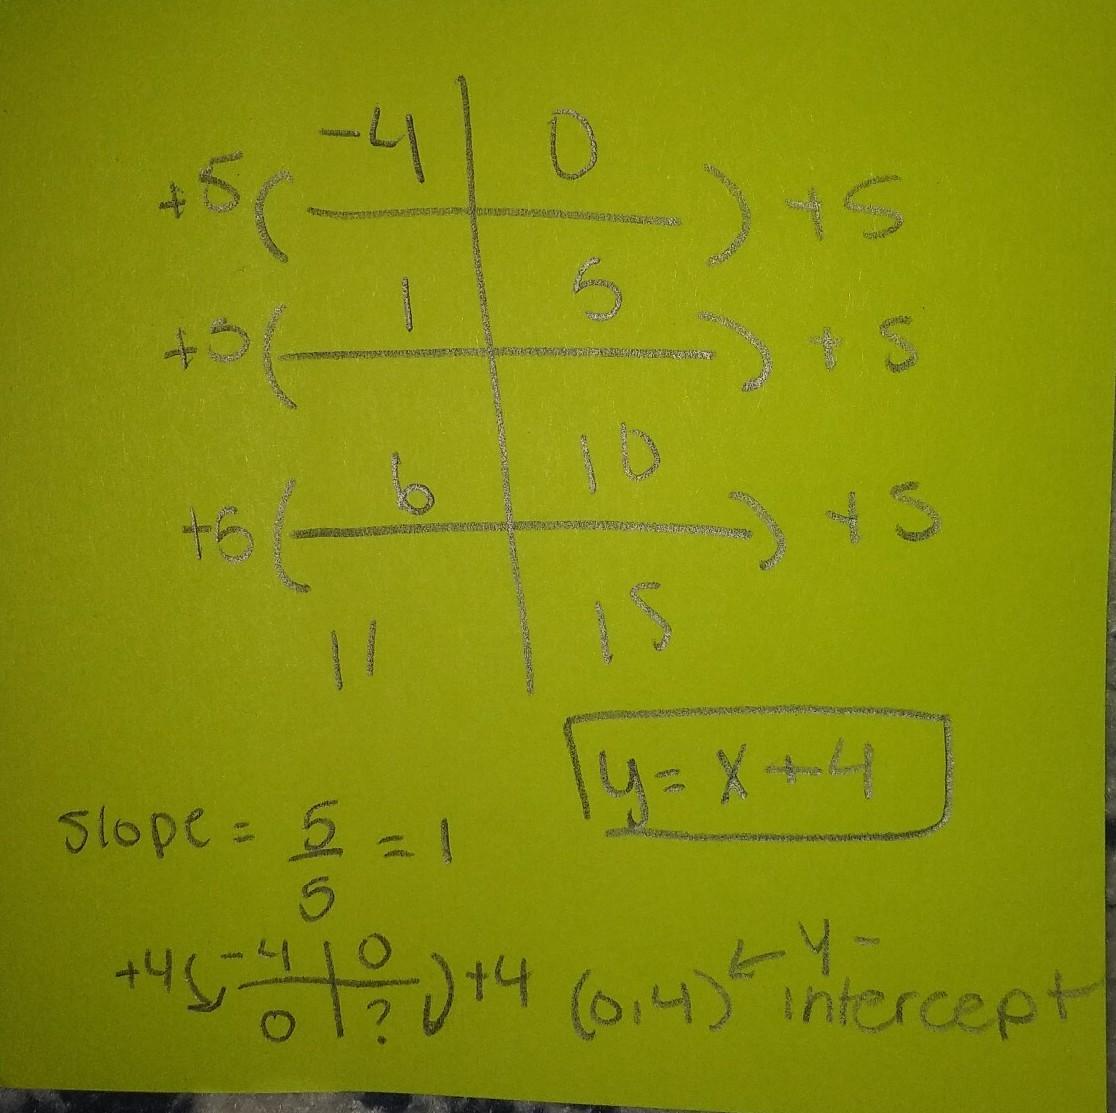 -4 | 0
+5 ( ) +5
1 | 5
+5 ( ) +5
6 | 10
+5 ( ) +5
11 | 15
y = x + 4
Slope = 5/5 = 1
+4 ( -4 | 0 ) +4
0 | ?
(0,4) ← y-
intercept